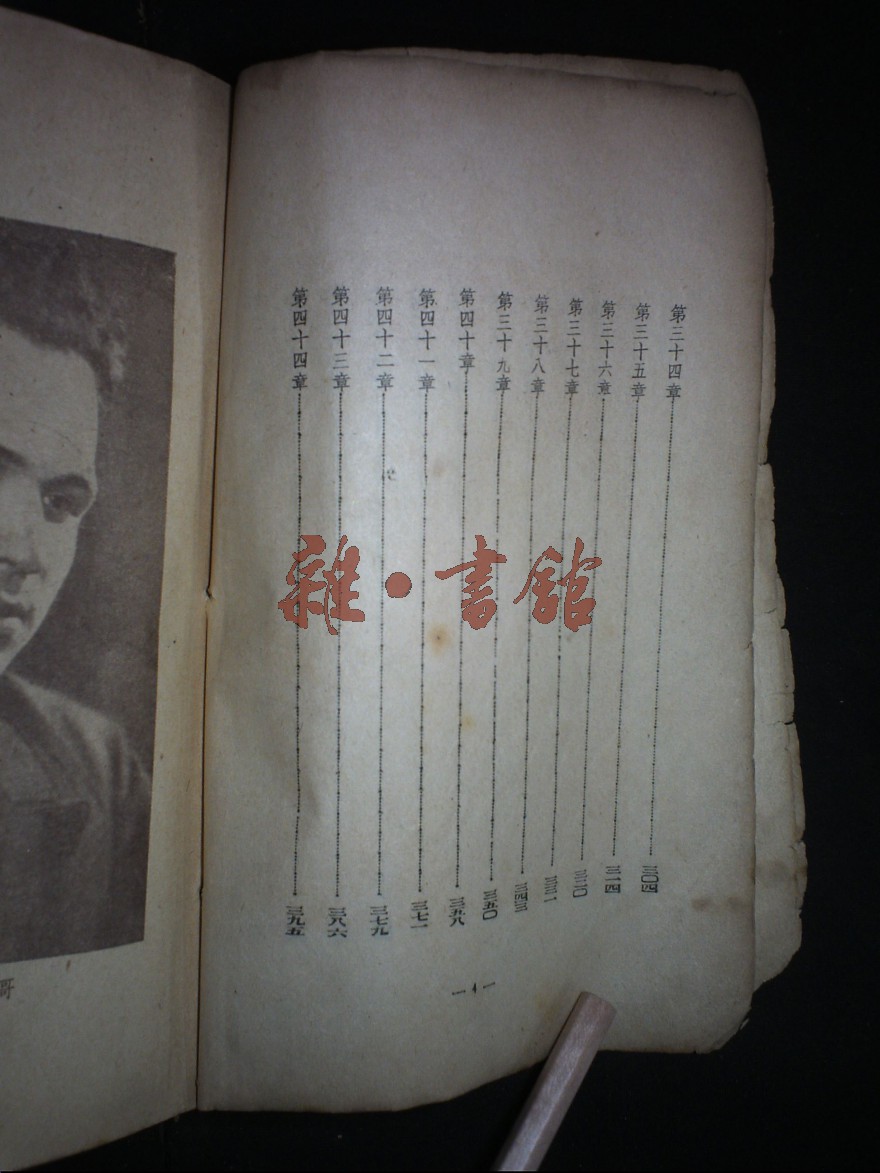 第三十四章 三〇四
第三十五章 三一四
第三十六章 三二〇
第三十七章 三三一
第三十八章 三四三
第三十九章 三五〇
第四十章 三五八
第四十一章 三七一
第四十二章 三七九
第四十三章 三八六
第四十四章 三九五
—4—
哥
雜·書館